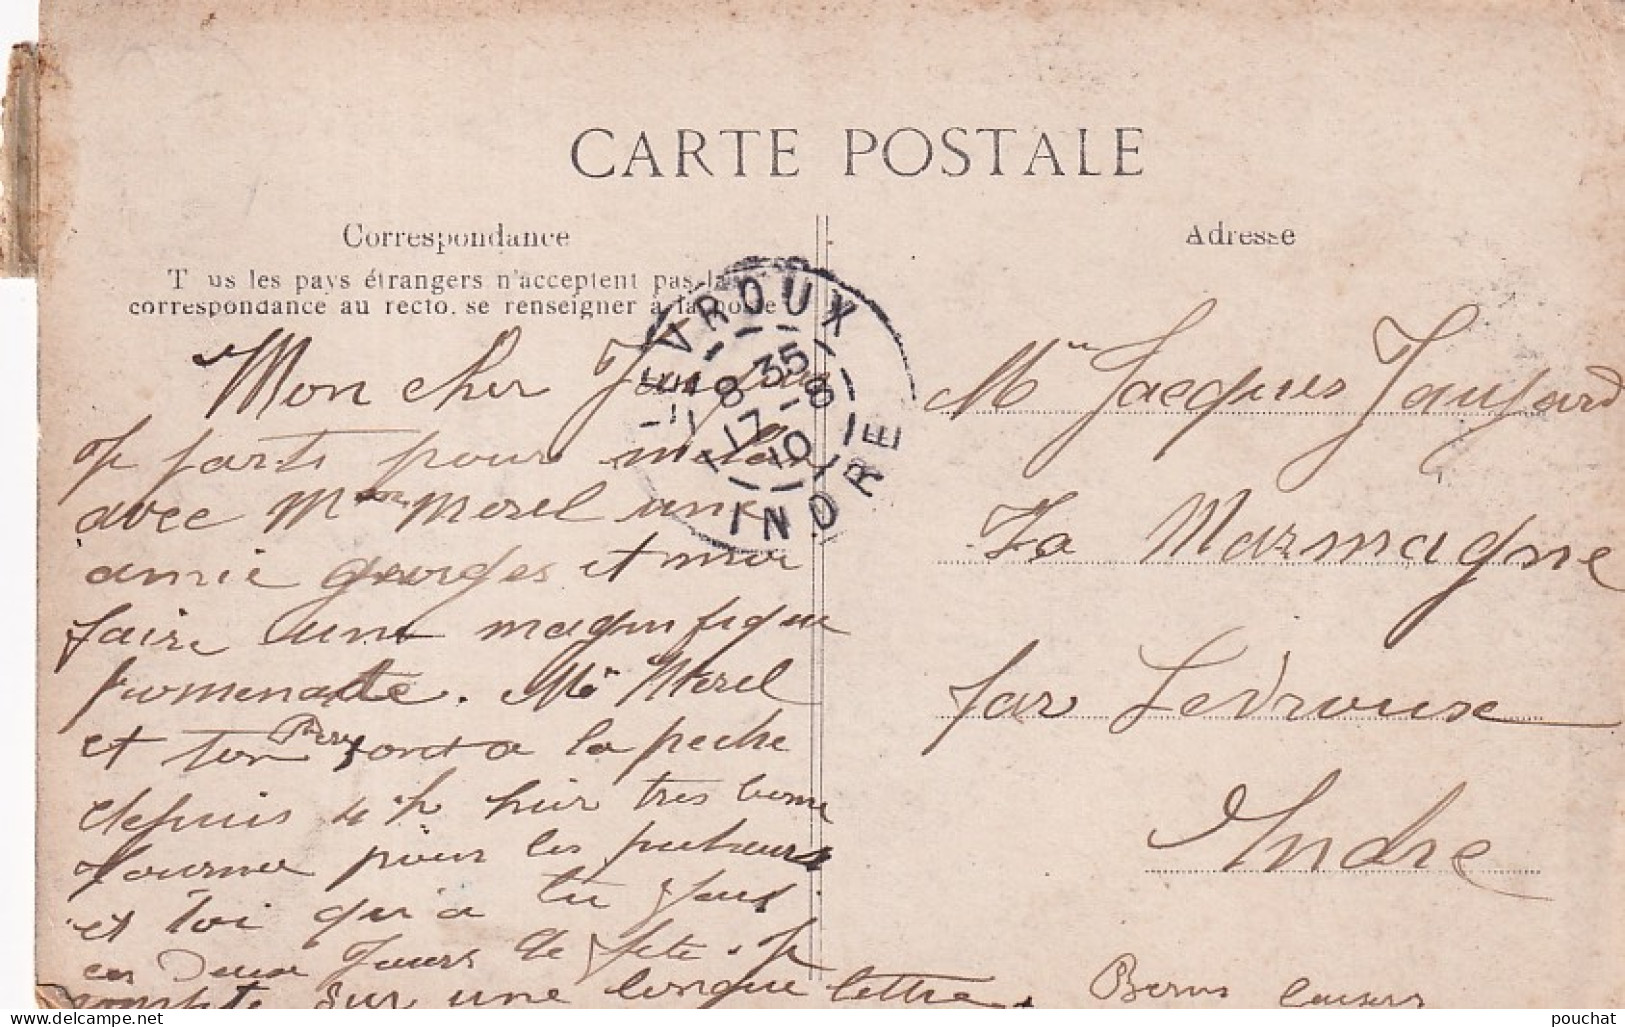 CARTE POSTALE
Correspondance
Tous les pays étrangers n'acceptent pas la
correspondance au recto. se renseigner à la poste
Adresse
LEVROUX
8 35
17-8
10
INDRE
Mon cher
Je parts pour
avec Mme Morel une
amie georges et moi
faire une magnifique
promenade. Mr Morel
et ton Père sont a la peche
depuis 4 h hier tres bonne
journee pour les pecheurs
et toi qu'a tu fait
ces Deux Jours de fete. Je
compte sur une longue lettre. Bons baisers
Mr Jacques Jaufard
La Marmagne
par Levroux
Indre
pouchat